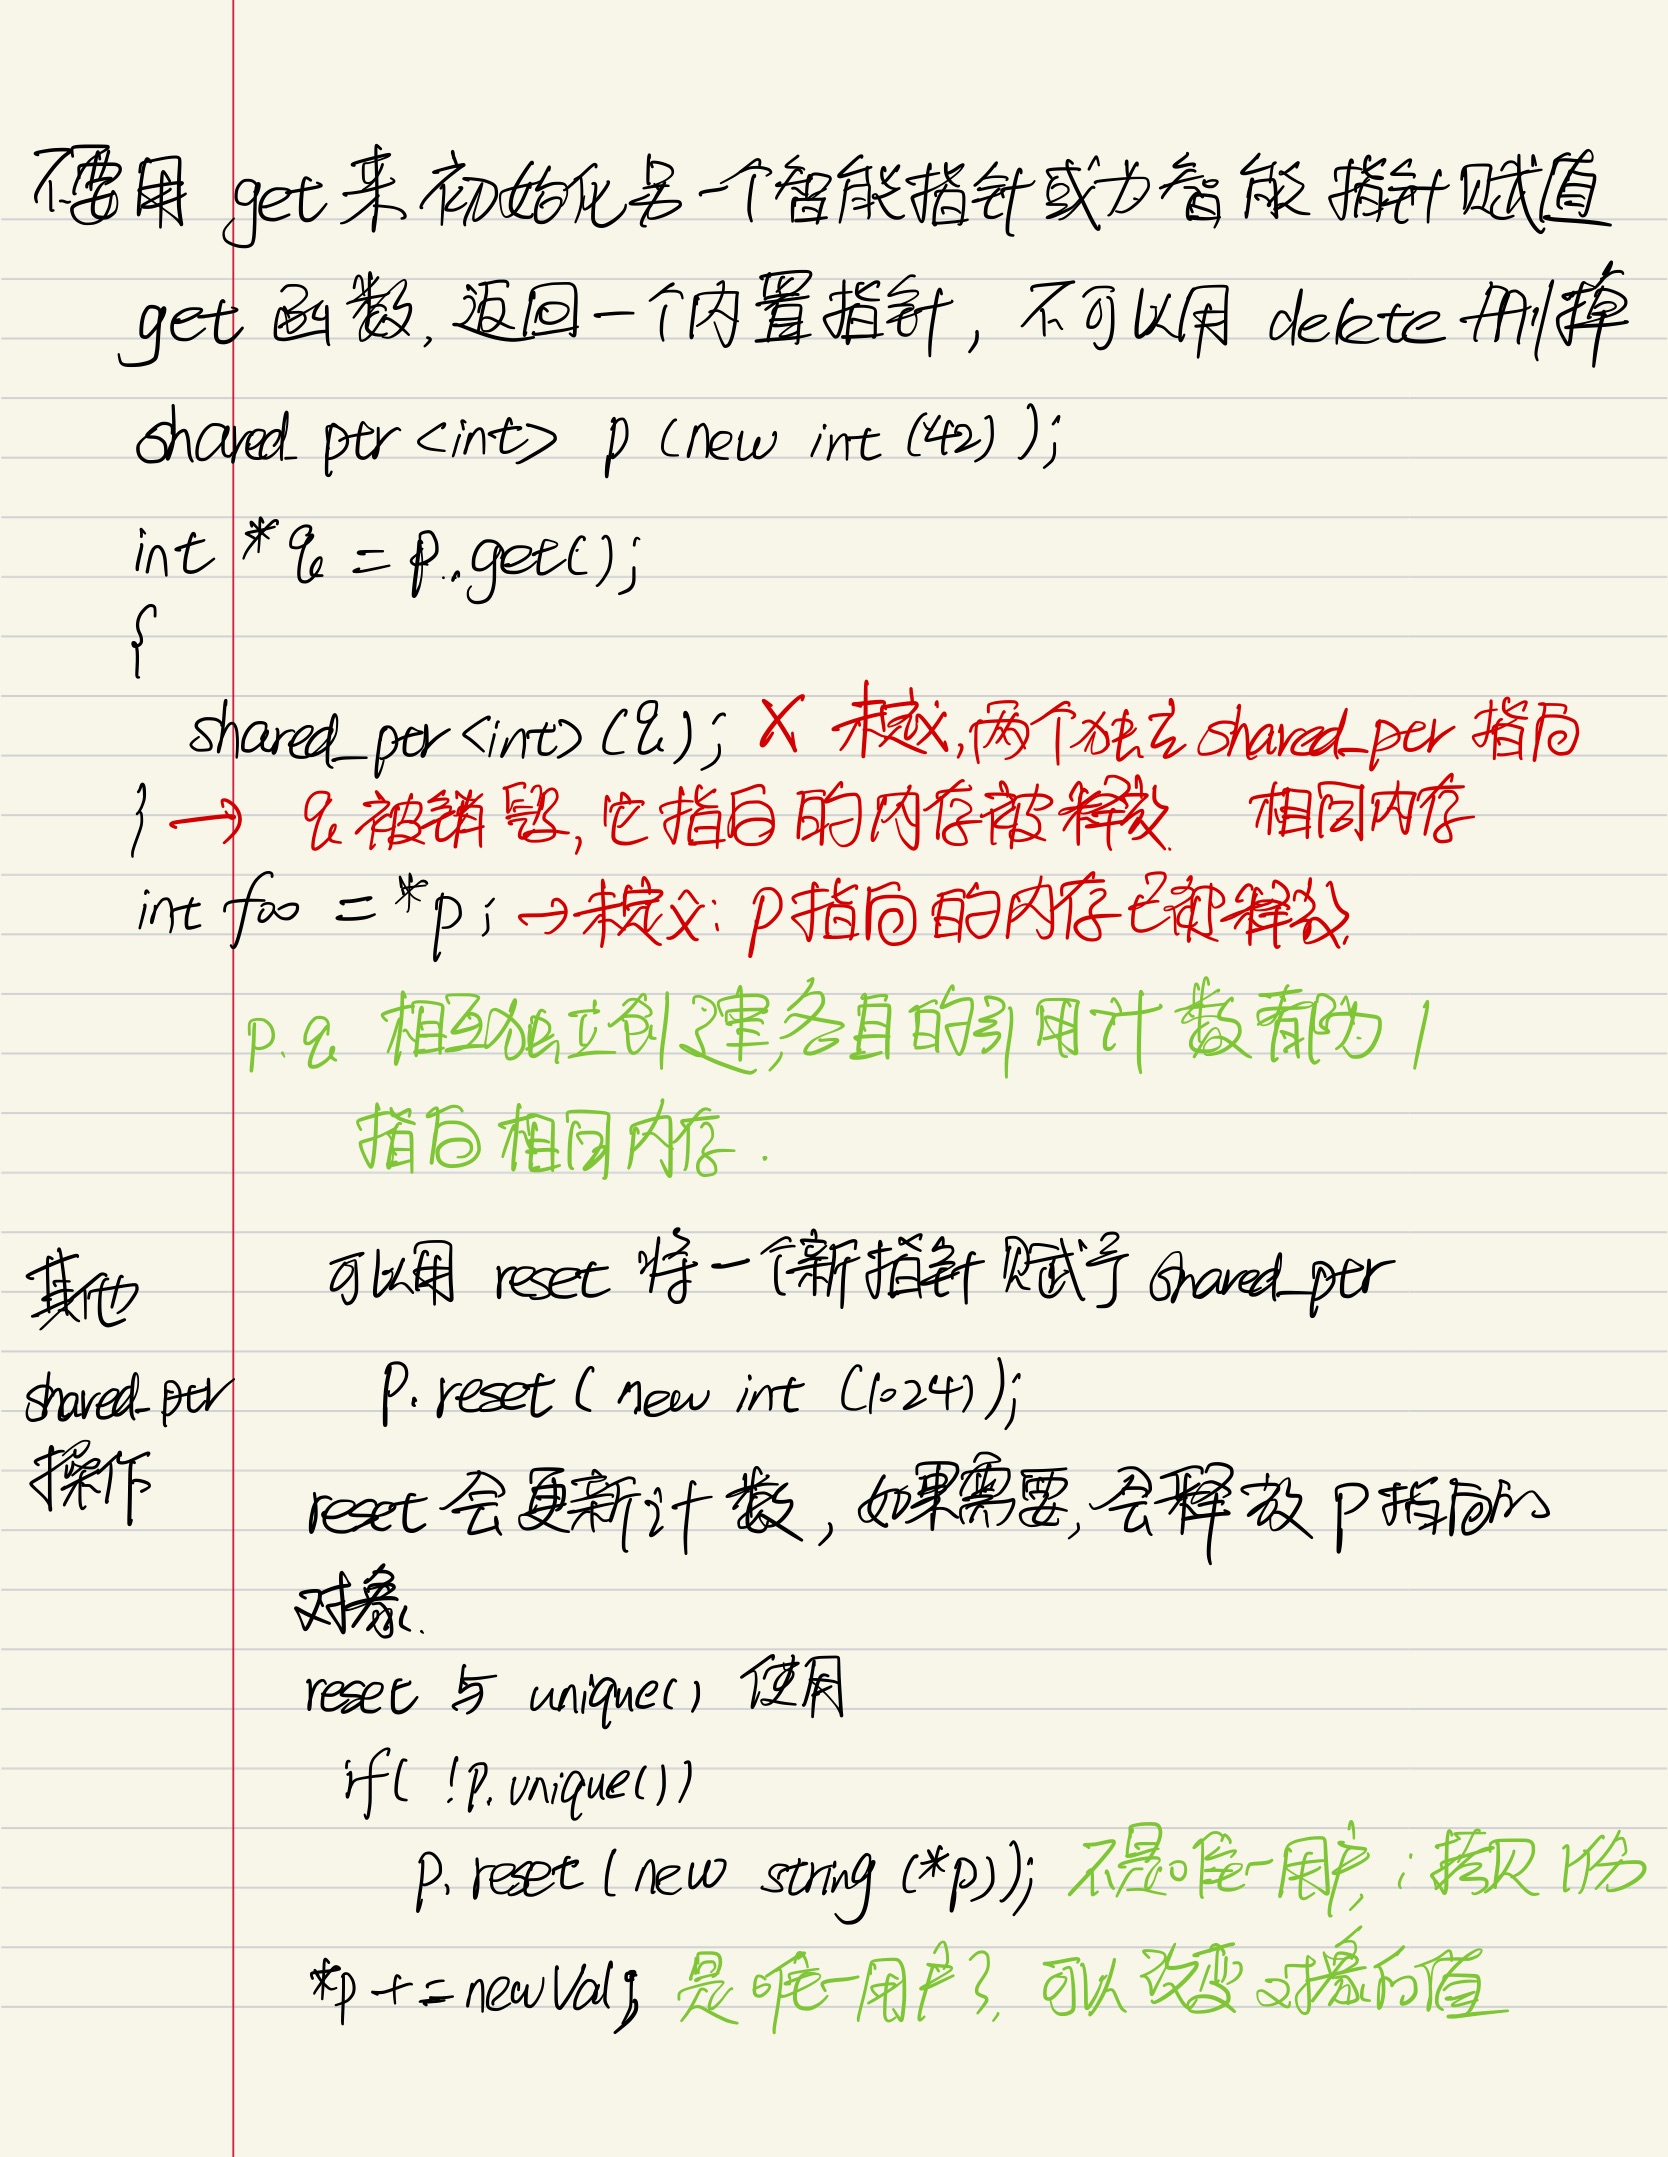 不要用 get来初始化另一个智能指针或为智能指针赋值
get 函数,返回一个内置指针,不可以用 delete 删掉
shared_ptr<int> p (new int (42));
int *q = p.get();
{
shared_ptr<int>(q); X 未定义,两个独立 shared_ptr 指向
} → q 被销毁,它指向的内存被释放. 相同内存
int foo = *p; →未定义: p指向的内存已被释放.
p.q 相互独立创建,各自的引用计数都为 1
指向相同内存.
其他
shared_ptr
操作
可以用 reset 将一个新指针赋予 shared_ptr
p.reset(new int (1024));
reset 会更新计数,如果需要,会释放 p 指向的
对象.
reset 与 unique() 使用
if( !p.unique())
p.reset(new string (*p)); 不是唯一用户;拷贝1份
*p += newVal; 是唯一用户了,可以改变对象的值